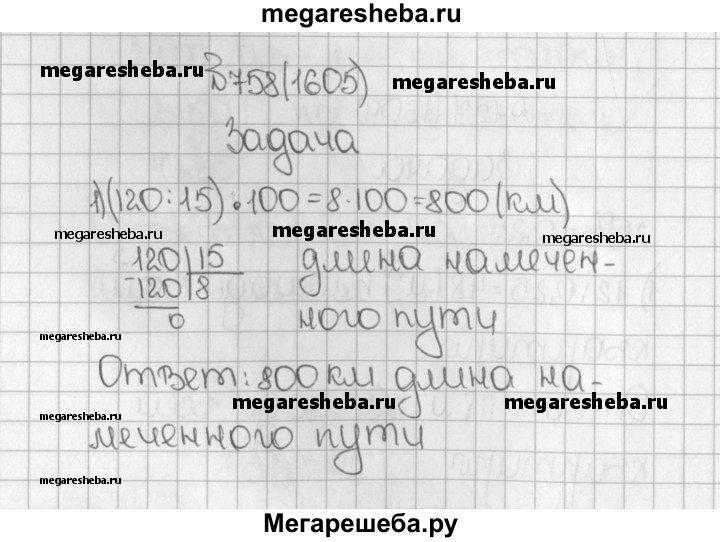 megaresheba.ru
№758(1605)
megaresheba.ru
megaresheba.ru
Задача
1)(120:15)•100=8·100=800(км)
megaresheba.ru
megaresheba.ru
megaresheba.ru
120 15
длина намечен-
-120 8
0
ного пути
megaresheba.ru
Ответ: 800 км длина на-
megaresheba.ru
megaresheba.ru
megaresheba.ru
меченного пути
megaresheba.ru
Мегарешеба.ру